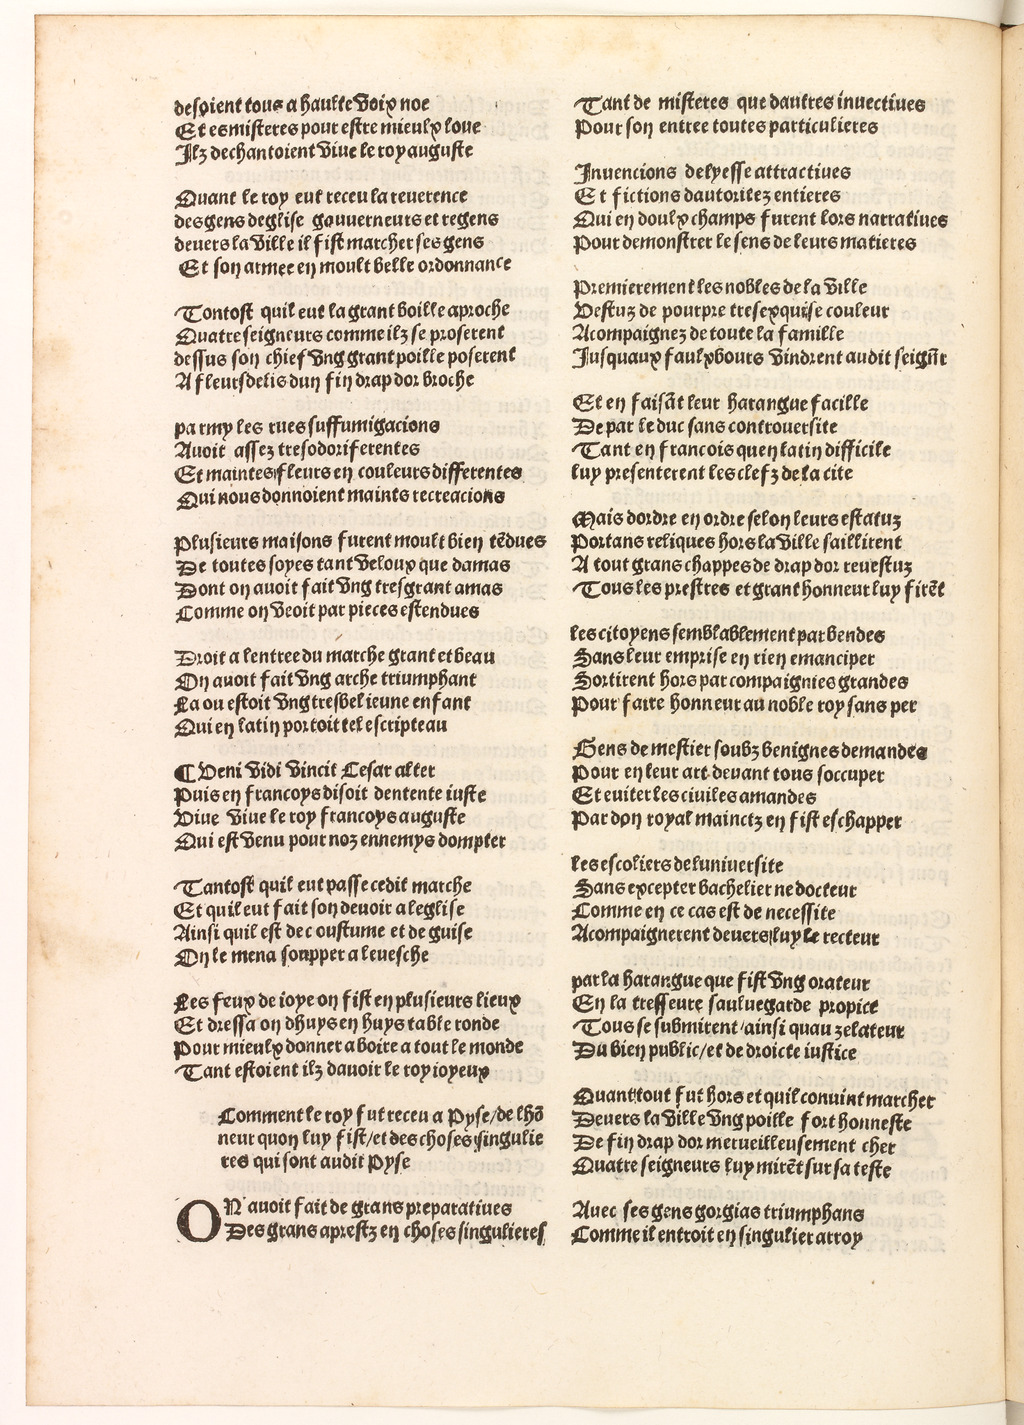 desoient tous a haulte voix noe
Et es misteres pour estre mieulx loue
Ilz dechantoient viue le roy auguste
Quant le roy eut receu la reuerence
des gens deglise gouuerneurs et regens
deuers la ville il fist marcher ses gens
Et son armee en moult belle ordonnance
Tantost quil eut la grant boille aproche
Quatre seigneurs comme ilz se proserent
dessus son chief vng grant poille poserent
A fleurs de lis dun fin drap dor broche
parmy les rues suffumigacions
Auoit assez tresodoriferentes
Et maintes fleurs en couleurs differentes
Qui nous donnoient maints recreacions
Plusieurs maisons furent moult bien tēdues
De toutes soyes tant veloux que damas
Dont on auoit fait vng tresgrant amas
Comme on veoit par pieces estendues
Droit a lentree du marche grant et beau
On auoit fait vng arche triumphant
La ou estoit vng tresbel ieune enfant
Qui en latin portoit tel escripteau
¶ Veni vidi vincit Cesar alter
Puis en francoys disoit dentente iuste
Viue viue le roy francoys auguste
Qui est venu pour noz ennemys dompter
Tantost quil eut passe cedit marche
Et quil eut fait son deuoir a leglise
Ainsi quil est de coustume et de guise
On le mena soupper a leuesche
Les feux de ioye on fist en plusieurs lieux
Et dressa on dhuys en huys table ronde
Pour mieulx donner a boire a tout le monde
Tant estoient ilz dauoir le roy ioyeux
Comment le roy fut receu a Pyse/de lhō
neur quon luy fist/et des choses singulie
res qui sont audit Pyse
ON auoit fait de grans preparatiues
Des grans aprestz en choses singulieres
Tant de misteres que dautres inuectiues
Pour son entree toutes particulieres
Inuencions delyesse attractiues
Et fictions dautoritez entieres
Qui en doulx champs furent lors narratiues
Pour demonstrer le sens de leurs matieres
Premierement les nobles de la ville
Vestuz de pourpre tresexquise couleur
Acompaignez de toute la famille
Iusquaux faulxbours vindrent audit seigñr
Et en faisāt leur harangue facille
De par le duc sans controuersite
Tant en francois quen latin difficile
luy presenterent les clefz de la cite
Mais dordre en ordre selon leurs estatuz
Portans reliques hors la ville saillirent
A tout grans chappes de drap dor reuestuz
Tous les prestres et grant honneur luy firēt
les citoyens semblablement par bendes
Sans leur emprise en rien emanciper
Sortirent hors par compaignies grandes
Pour faire honneur au noble roy sans per
Gens de mestier soubz benignes demandes
Pour en leur art deuant tous soccuper
Et euiter les ciuiles amandes
Par don royal mainctz en fist eschapper
les escoliers de luniuersite
Sans excepter bachelier ne docteur
Comme en ce cas est de necessite
Acompaignerent deuers luy le recteur
par la harangue que fist vng orateur
En la tresseure sauluegarde propice
Tous se submirent/ainsi quau zelateur
Du bien public/et de droicte iustice
Quant tout fut hors et quil conuint marcher
Deuers la ville vng poille fort honneste
De fin drap dor merueilleusement cher
Quatre seigneurs luy mirēt sur sa teste
Auec ses gens gorgias triumphans
Comme il entroit en singulier arroy